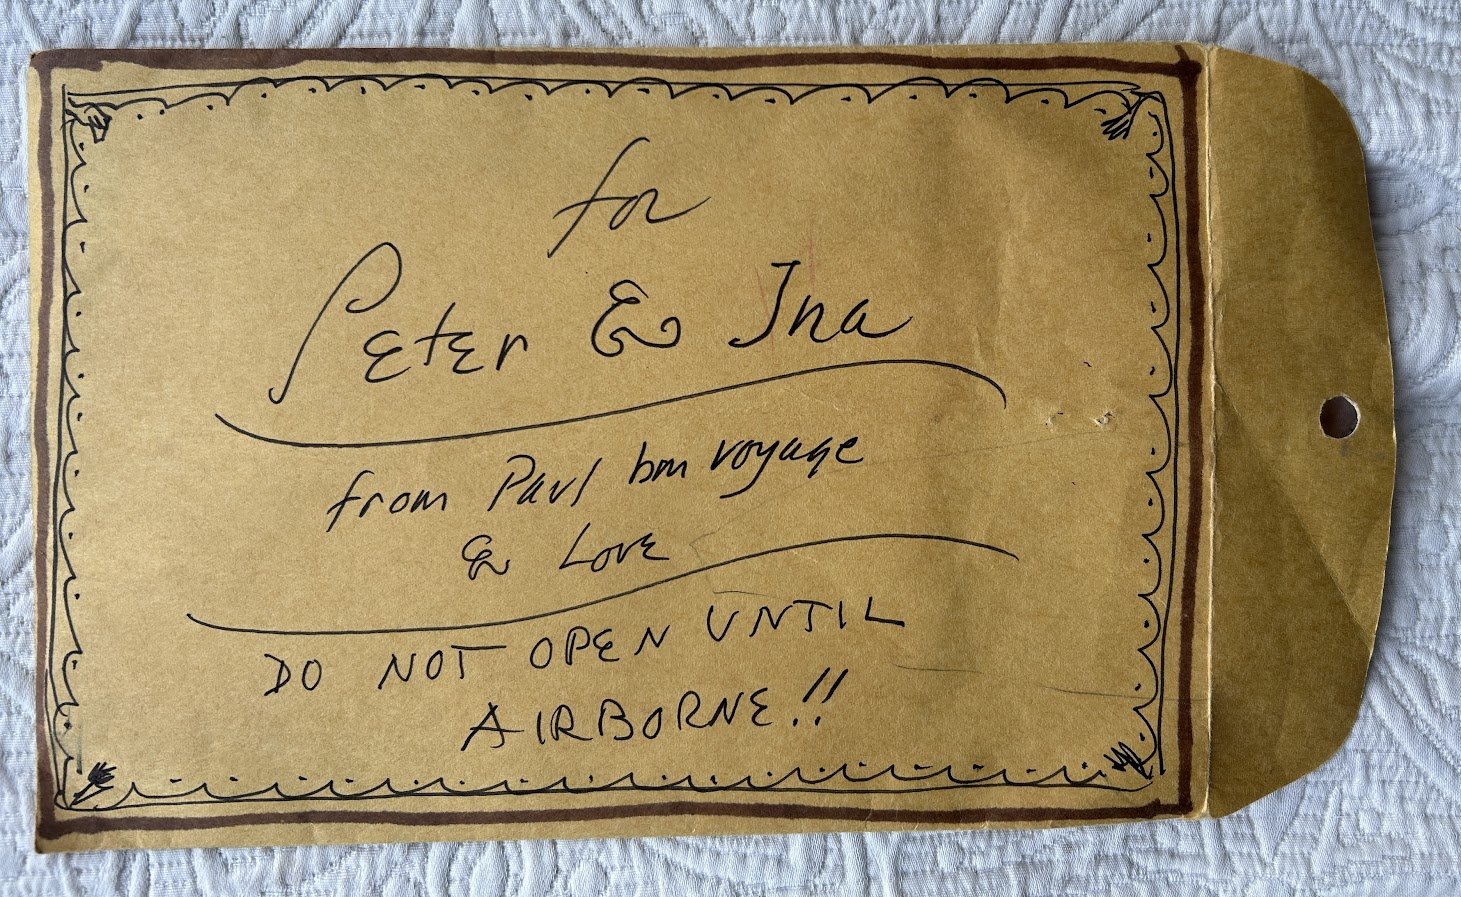 for
Peter & Ina
from Paul bon voyage
& Love
DO NOT OPEN UNTIL
AIRBORNE!!